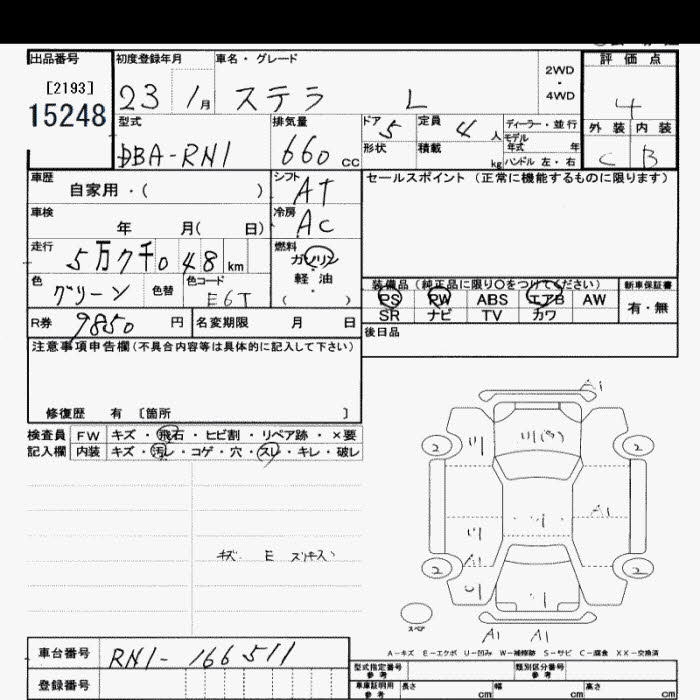 出品番号 初度登録年月 車名・グレード 2WD 評価点
[2193] 23 1月 ステラ L ・ 4
15248 4WD
型式 排気量 ドア 5 定員 4人 ディーラー・並行 外装 内装
DBA-RN1 660 cc 形状 積載 kg モデル年式 年 C B
ハンドル 左・右
車歴 自家用・( ) シフト AT セールスポイント (正常に機能するものに限ります)
車検 年 月( 日) 冷房 AC
走行 5万7千048km 燃料 ガソリン
軽油
( )
色 グリーン 色替 色コード E6T
装備品 (純正品に限り○をつけてください) 新車保証書
PS PW ABS エアB AW 有・無
SR ナビ TV カワ
R券 9850 円 名変期限 月 日 後日品
注意事項申告欄(不具合内容等は具体的に記入して下さい)
修復歴 有 〔箇所 〕
検査員 FW キズ・飛石・ヒビ割・リペア跡・×要
記入欄 内装 キズ・汚レ・コゲ・穴・スレ・キレ・破レ
A1
2 2
A1
A1
2 2
C
スペア
A1 A1
A-キズ E-エクボ U-凹み W-補修跡 S-サビ C-腐食 XX-交換済
車台番号 RN1-166511
登録番号
型式指定番号 参考 類別区分番号 参考
車庫証明用 参考 長さ cm 幅 cm 高さ cm